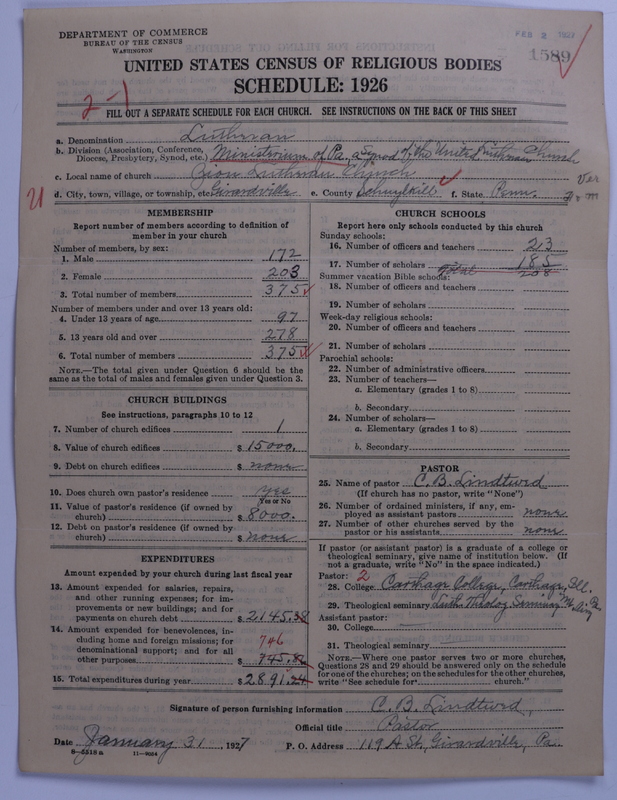 DEPARTMENT OF COMMERCE
BUREAU OF THE CENSUS
WASHINGTON
FEB 2 1927
1589
UNITED STATES CENSUS OF RELIGIOUS BODIES
SCHEDULE: 1926
2-1
FILL OUT A SEPARATE SCHEDULE FOR EACH CHURCH. SEE INSTRUCTIONS ON THE BACK OF THIS SHEET
a. Denomination Lutheran
b. Division (Association, Conference, Diocese, Presbytery, Synod, etc.) Ministerium of Pa. a Synod of the United Lutheran Church
c. Local name of church Zion Lutheran Church
d. City, town, village, or township, etc. Girardville e. County Schuylkill f. State Penn.
MEMBERSHIP
Report number of members according to definition of
member in your church
Number of members, by sex:
1. Male 172
2. Female 203
3. Total number of members 375
Number of members under and over 13 years old:
4. Under 13 years of age 97
5. 13 years old and over 278
6. Total number of members 375
NOTE.—The total given under Question 6 should be the
same as the total of males and females given under Question 3.
CHURCH BUILDINGS
See instructions, paragraphs 10 to 12
7. Number of church edifices 1
8. Value of church edifices $ 15000.
9. Debt on church edifices $ none
10. Does church own pastor's residence yes
Yes or No
11. Value of pastor's residence (if owned by
church) $ 8000.
12. Debt on pastor's residence (if owned by
church) $ none
EXPENDITURES
Amount expended by your church during last fiscal year
13. Amount expended for salaries, repairs,
and other running expenses; for im-
provements or new buildings; and for
payments on church debt $ 2145.38
14. Amount expended for benevolences, in-
cluding home and foreign missions; for
denominational support; and for all
other purposes $ 745.86
746
15. Total expenditures during year $ 2891.24
CHURCH SCHOOLS
Report here only schools conducted by this church
Sunday schools:
16. Number of officers and teachers 23
17. Number of scholars 185
Total 208
Summer vacation Bible schools:
18. Number of officers and teachers
19. Number of scholars
Week-day religious schools:
20. Number of officers and teachers
21. Number of scholars
Parochial schools:
22. Number of administrative officers
23. Number of teachers—
a. Elementary (grades 1 to 8)
b. Secondary
24. Number of scholars—
a. Elementary (grades 1 to 8)
b. Secondary
PASTOR
25. Name of pastor C. B. Lindtwed
(If church has no pastor, write "None")
26. Number of ordained ministers, if any, em-
ployed as assistant pastors none
27. Number of other churches served by the
pastor or his assistants none
If pastor (or assistant pastor) is a graduate of a college or
theological seminary, give name of institution below. (If
not a graduate, write "No" in the space indicated.)
Pastor: 2
28. College Carthage College, Carthage, Ill.
29. Theological seminary Luth. Theolog. Seminary Mt. Airy Pa
Assistant pastor:
30. College
31. Theological seminary
NOTE.—Where one pastor serves two or more churches,
Questions 28 and 29 should be answered only on the schedule
for one of the churches; on the schedules for the other churches,
write "See schedule for church."
Signature of person furnishing information C. B. Lindtwed,
Official title Pastor
Date January 31, 1927 P. O. Address 119 A St., Girardville, Pa.
8—5518 a 11—9064